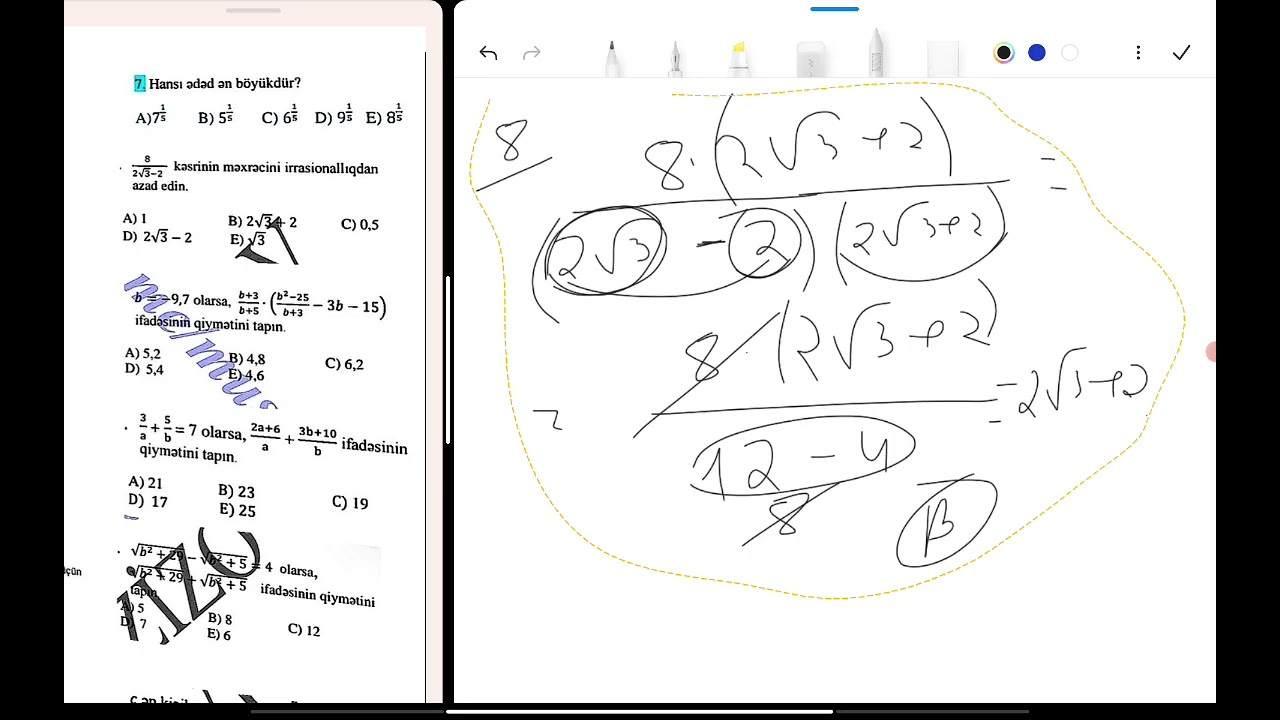 7. Hansı ədəd ən böyükdür?
A)7^{1/5} B) 5^{1/5} C) 6^{1/5} D) 9^{1/5} E) 8^{1/5}
8/(2√3−2) kəsrinin məxrəcini irrasionallıqdan
azad edin.
A) 1 B) 2√3 + 2 C) 0,5
D) 2√3 − 2 E) √3
b = −9,7 olarsa, (b+3)/(b+5) · ((b²−25)/(b+3) − 3b − 15)
ifadəsinin qiymətini tapın.
A) 5,2 B) 4,8 C) 6,2
D) 5,4 E) 4,6
3/a + 5/b = 7 olarsa, (2a+6)/a + (3b+10)/b ifadəsinin
qiymətini tapın.
A) 21 B) 23 C) 19
D) 17 E) 25
√(b² + 29) − √(b² + 5) = 4 olarsa,
√(b² + 29) + √(b² + 5) ifadəsinin qiymətini
tapın.
A) 5 B) 8 C) 12
D) 7 E) 6
üçün
8
8·(2√3+2) / (2√3 − 2)(2√3+2) =
= 8(2√3+2) / 12−4 = 2√3+2
8
B